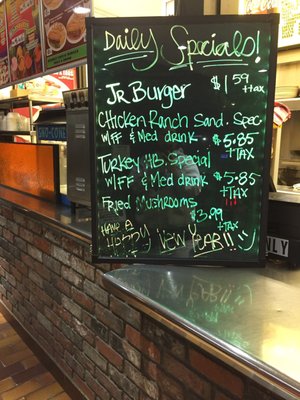 Daily Specials!
Jr Burger $1.59
+tax
Chicken Ranch Sand. Spec
w/FF & Med drink $5.85
+TAX
Turkey HB. Special
w/FF & Med drink $5.85
+TAX
Fried Mushrooms
$3.99
+TAX
Have a
Happy New Year!!
SNO-CONE